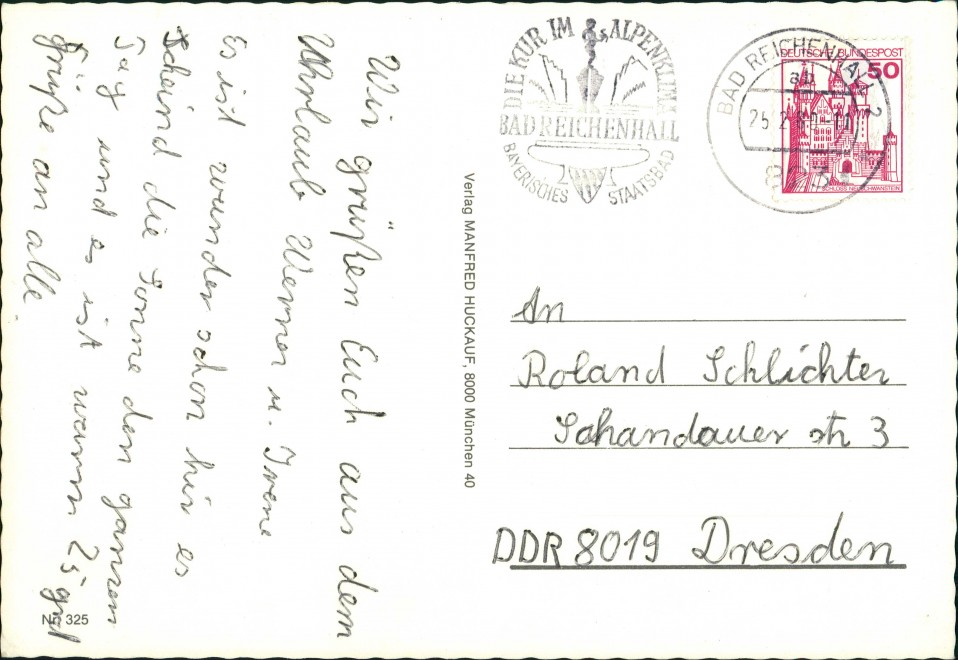 Wir grüßen Euch aus dem
Uhrlaub Werner u. Irene
Es ist wunder schon hir es
Scheind die Sonne den ganzen
Tag und es ist warm 25 grd
Grüße an alle.
Nr. 325
Verlag MANFRED HUCKAUF, 8000 München 40
DIE KUR IM ALPENKLIMA
BAD REICHENHALL
BAYERISCHES STAATSBAD
BAD REICHENHALL 2
ab
DEUTSCHE BUNDESPOST
50
SCHLOSS NEUSCHWANSTEIN
An
Roland Schlichter
Schandauer str 3
DDR 8019 Dresden